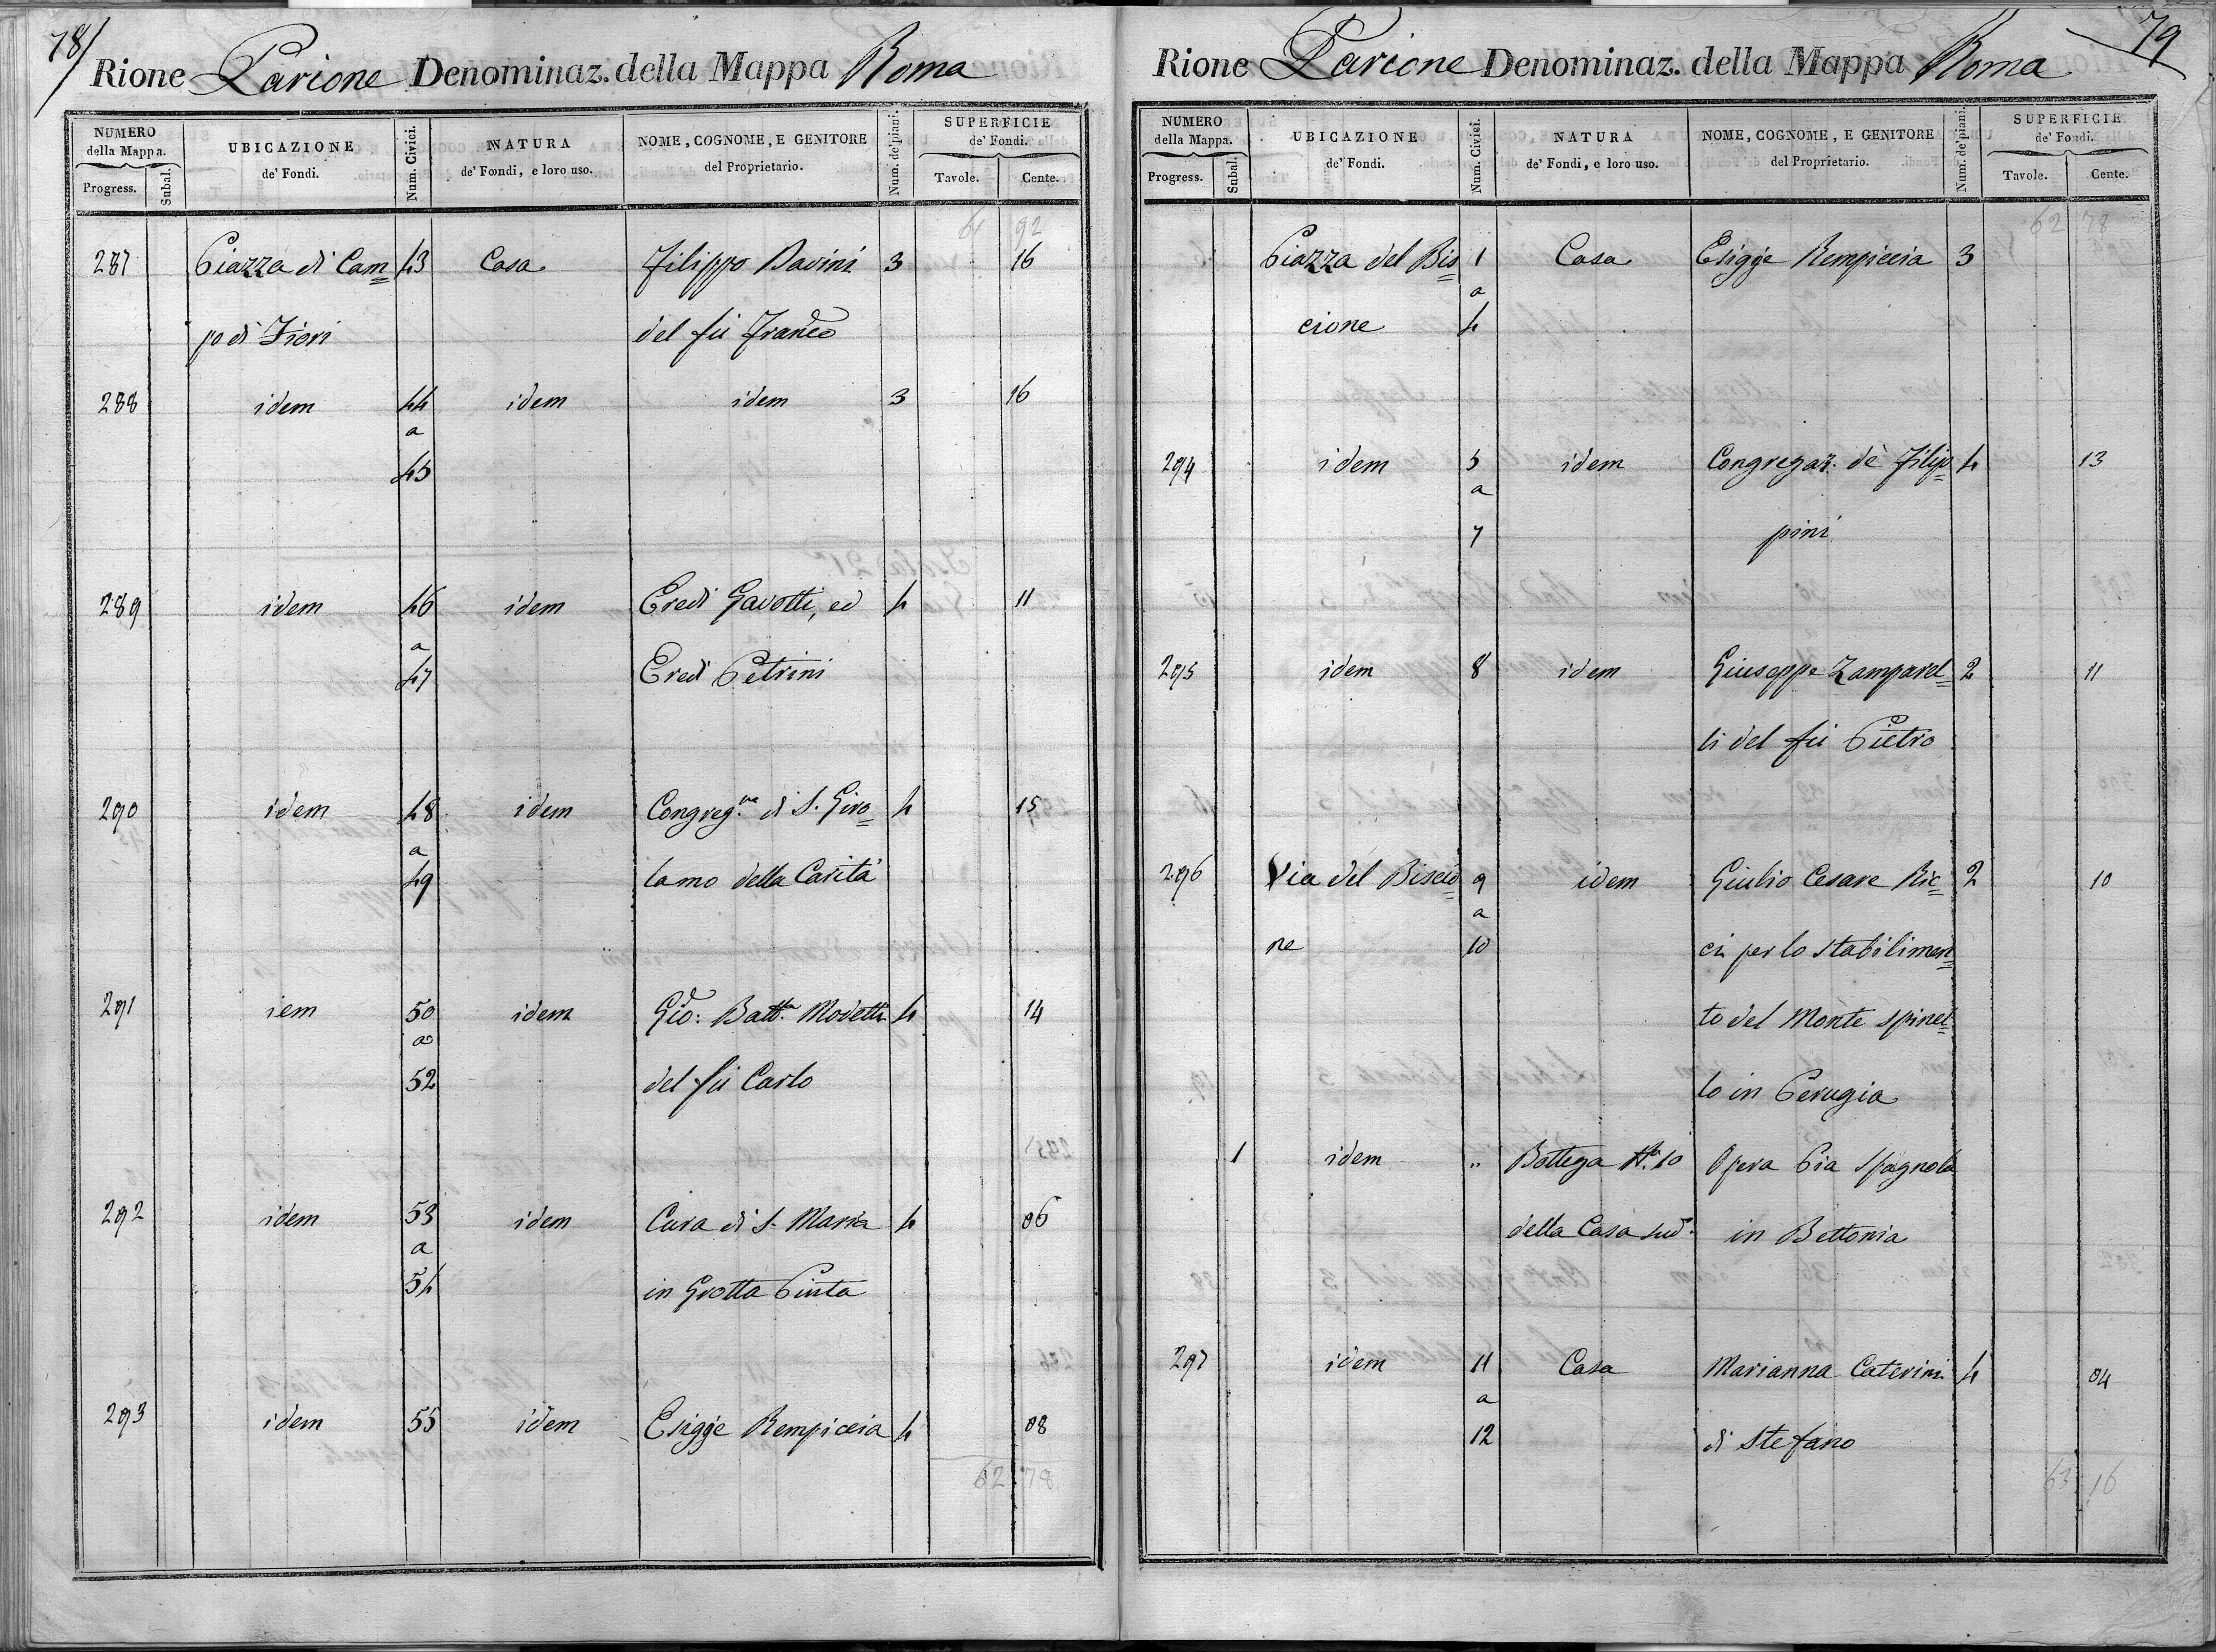 78
Rione Parione Denominaz. della Mappa Roma
NUMERO della Mappa. UBICAZIONE de' Fondi. Num. Civici. NATURA de' Fondi, e loro uso. NOME, COGNOME, E GENITORE del Proprietario. Num. de' piani. SUPERFICIE de' Fondi.
Progress. Subal. Tavole. Cente.
61 92
287 Piazza di Cam= 43 Casa Filippo Bavini 3 16
po di Fiori del fù Franco
288 idem 44 idem idem 3 16
a
45
289 idem 46 idem Eredi Gavotti, ed 4 11
a
47 Eredi Petrini
290 idem 48 idem Congreg.ne di S. Giro= 4 15
a
49 lamo della Carità
291 iem 50 idem Gio: Batt.a Modetti 4 14
a
52 del fù Carlo
292 idem 53 idem Cura di S. Maria 4 06
a
54 in Grotta Pinta
293 idem 55 idem Esigge Rempiccia 4 08
62 78
79
Rione Parione Denominaz. della Mappa Roma
NUMERO della Mappa. UBICAZIONE de' Fondi. Num. Civici. NATURA de' Fondi, e loro uso. NOME, COGNOME, E GENITORE del Proprietario. Num. de' piani. SUPERFICIE de' Fondi.
Progress. Subal. Tavole. Cente.
62 78
Piazza del Bis= 1 Casa Esigge Rempiccia 3
a
cione 4
294 idem 5 idem Congregaz. de' Filip= 4 13
a
7 pini
295 idem 8 idem Giuseppe Zamparel= 2 11
li del fù Pietro
296 Via del Biscio= 9 idem Giulio Cesare Ric= 2 10
a
ne 10 ci per lo stabilimen=
to del Monte Spinel=
lo in Perugia
1 idem " Bottega N.º 10 Opera Pia Spagnola
della Casa sud.a in Bettonia
297 idem 11 Casa Marianna Caterini 4 04
a
12 di Stefano
63 16